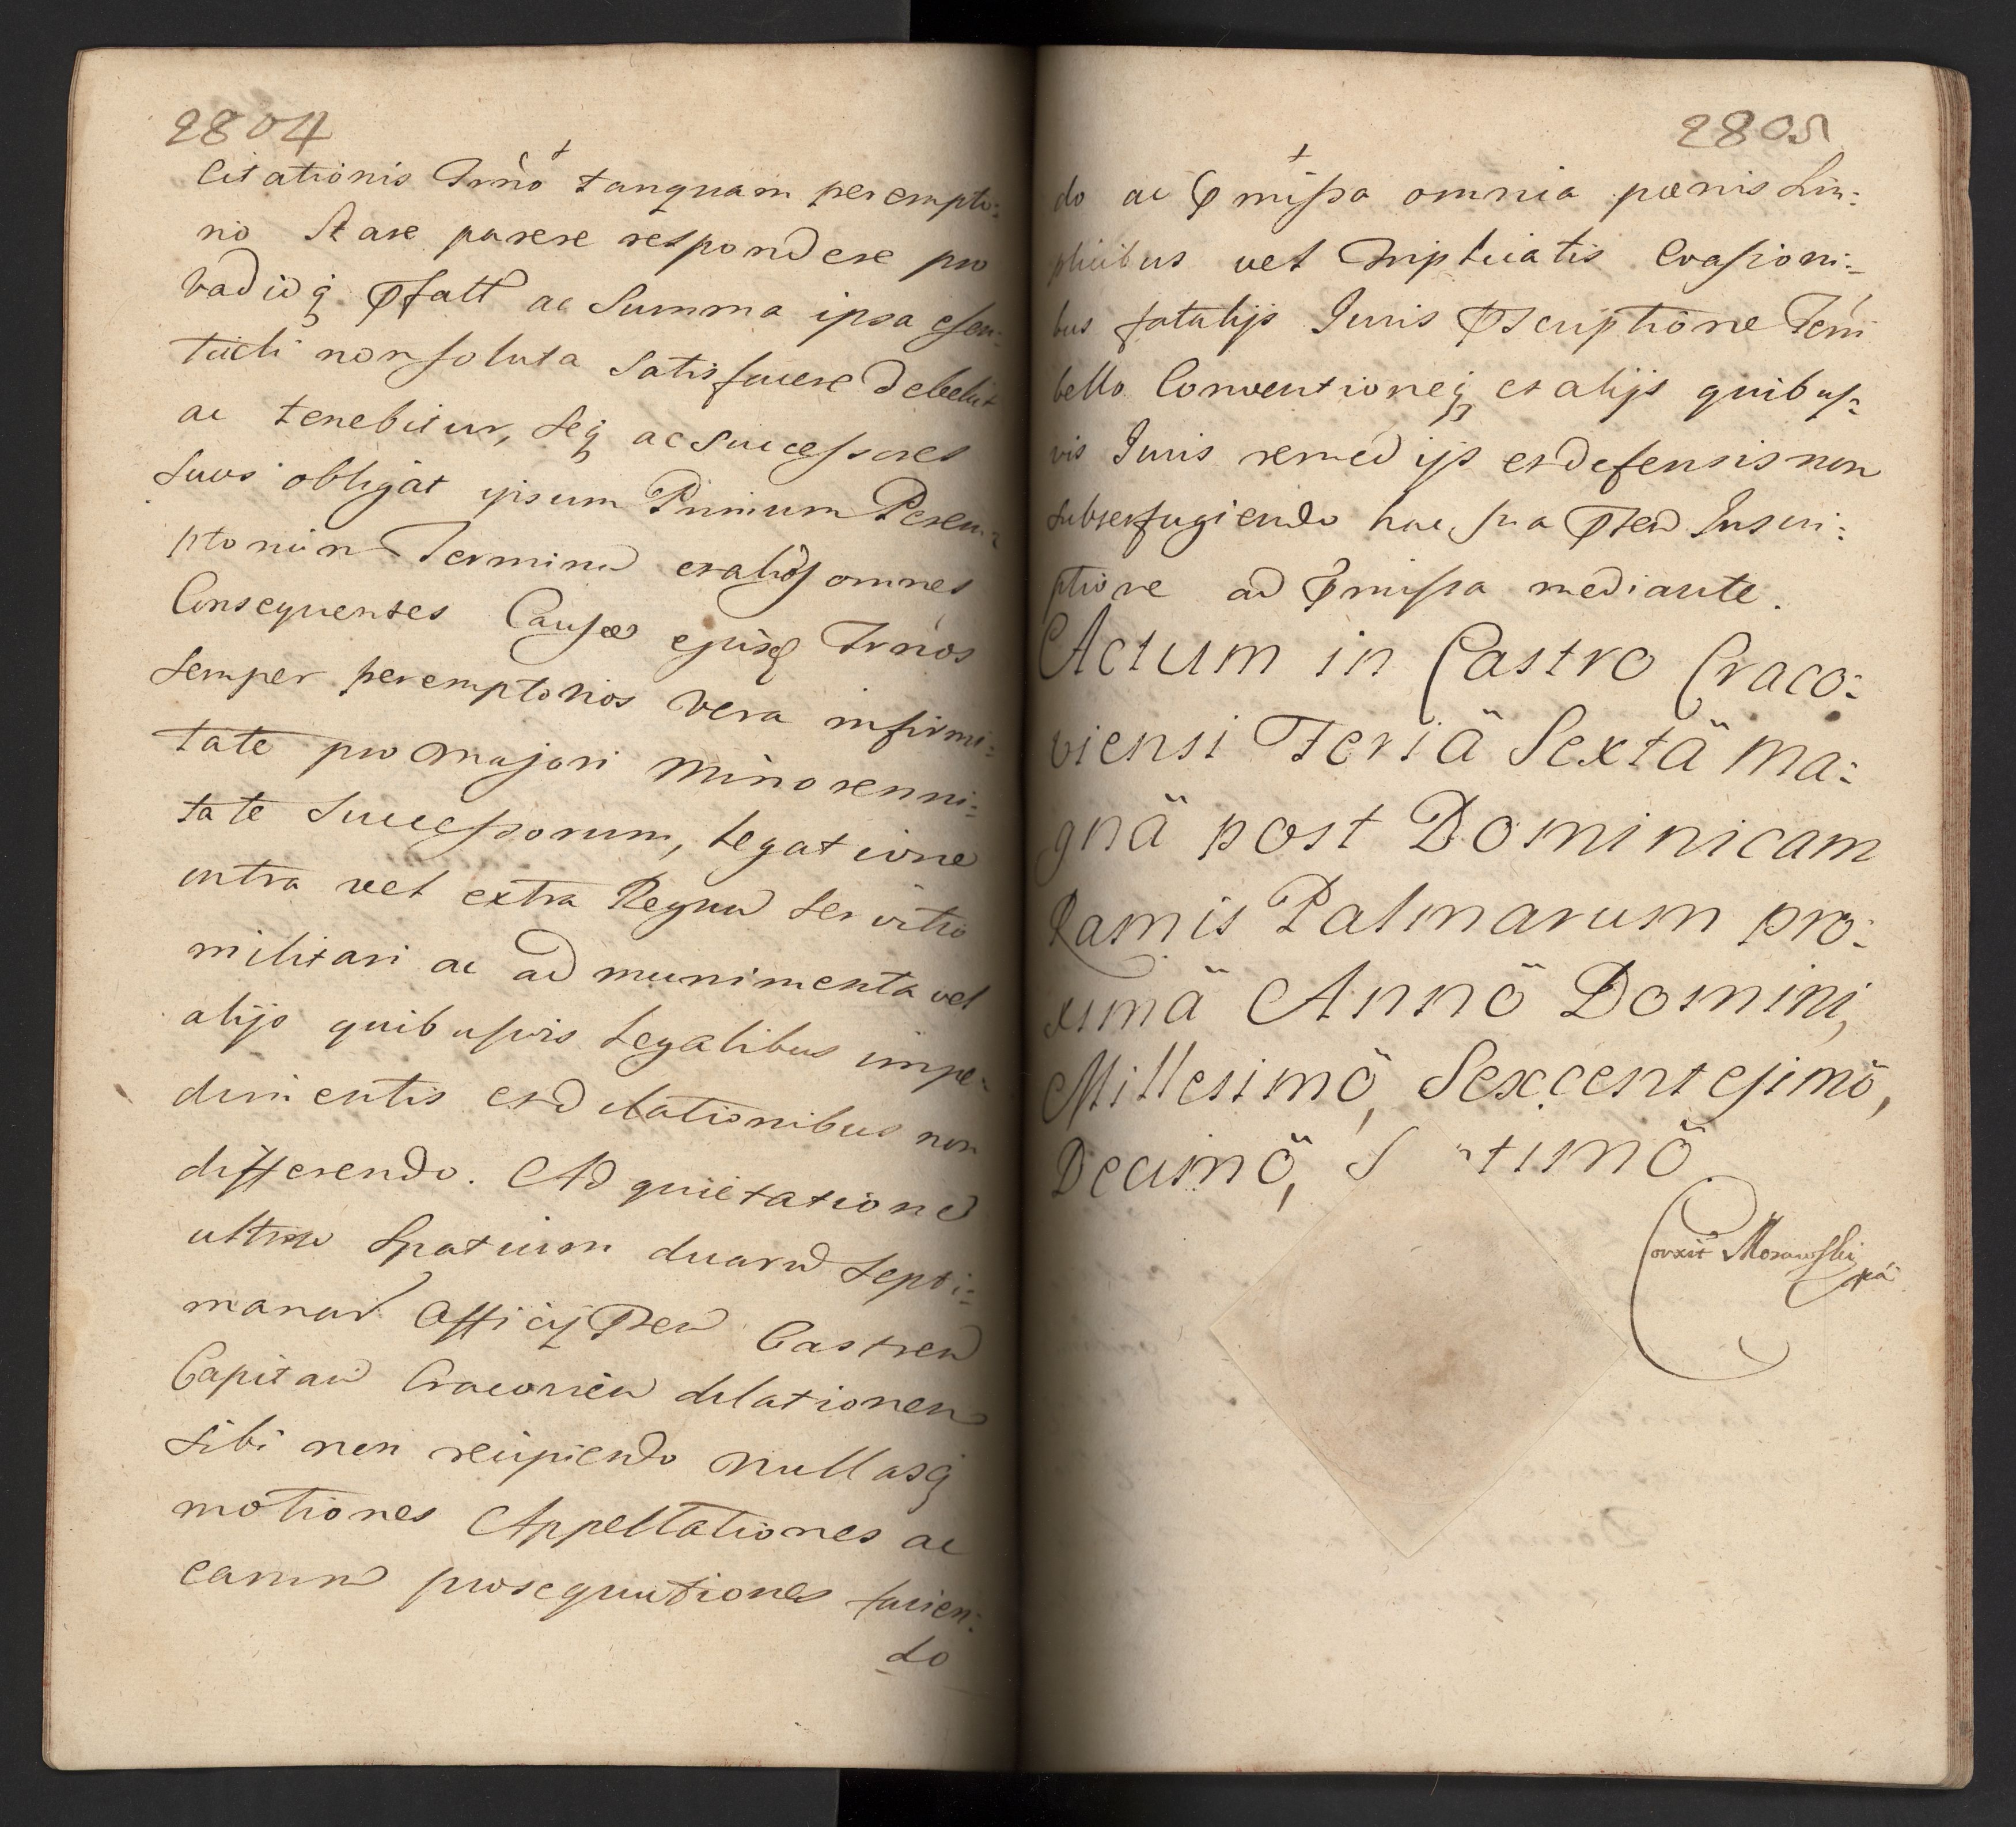 2804
Citationis Trno tanquam perempto:
rio Stare parere respondere pro
Vadioq; Pfatt ac Summa ipsa esen:
tiali non soluta Satisfacere debebit
ac tenebitur, seq; ac Successores
suos obligat ipsum Primum Perem:
ptorium Terminu et aliosq; omnes
Consequentes Causæ ejusq; Trnos
semper peremptorios vera infirmi:
tate pro majori minorenni:
tate Successorum, legatione
intra vel extra Regnu servitio
militari ac ad munimenta vel
alijs quibusvis legalibus impe:
dimentis et dilationibus non
differendo. Ad quietatione
ultra Spatium duaru septi:
manaru Officij Pten Castren
Capitan Cracovien dilationem
sibi non recipiendo nullasq;
motiones Appellationes ac
earum prosequutiones facien:
do
2805
do ac Pmissa omnia pœnis Sim:
plicibus vel Triplicatis Evasioni:
bus fatalijs Juris Pscriptione Terri
bello Conventioneq; et alijs quibus:
vis Juris remedijs et defensis non
subterfugiendo hac sua Pten Inscri:
ptione ad Pmissa mediante.
Actum in Castro Craco:
viensi Feriä Sextä ma:
gnä post Dominicam
Ramis Palmarum pro:
ximä Annö Domini,
Millesimö, Sexcentesimö,
Decimö, S timö
Corxit Morawski